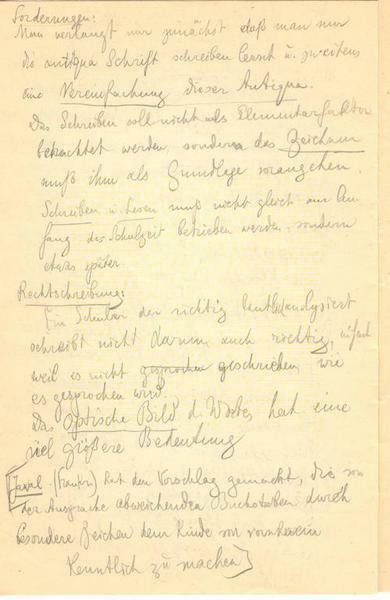 Forderungen:
Man verlangt nur zunächst daß man nur
die antiqua Schrift schreiben lernt u. zweitens
eine Vereinfachung dieser Antiqua.
Das Schreiben soll nicht als Elementarfaktor
betrachtet werden, sondern das Zeichnen
muß ihm als Grundlage vorangehen.
Schreiben u. Lesen muß nicht gleich am An-
fang der Schulzeit betrieben werden, sondern
etwas später
Rechtschreibung:
Ein Schüler der richtig lautl. analysiert
schreibt nicht darum auch richtig, einfach
weil es nicht gesprochen geschrieben wie
es gesprochen wird.
Das optische Bild d. Wortes hat eine
viel größere Bedeutung
[ (Frankr.) hat den Vorschlag gemacht, die von
der Aussprache abweichenden Buchstaben durch
besondere Zeichen dem Kinde von vornherein
kenntlich zu machen]